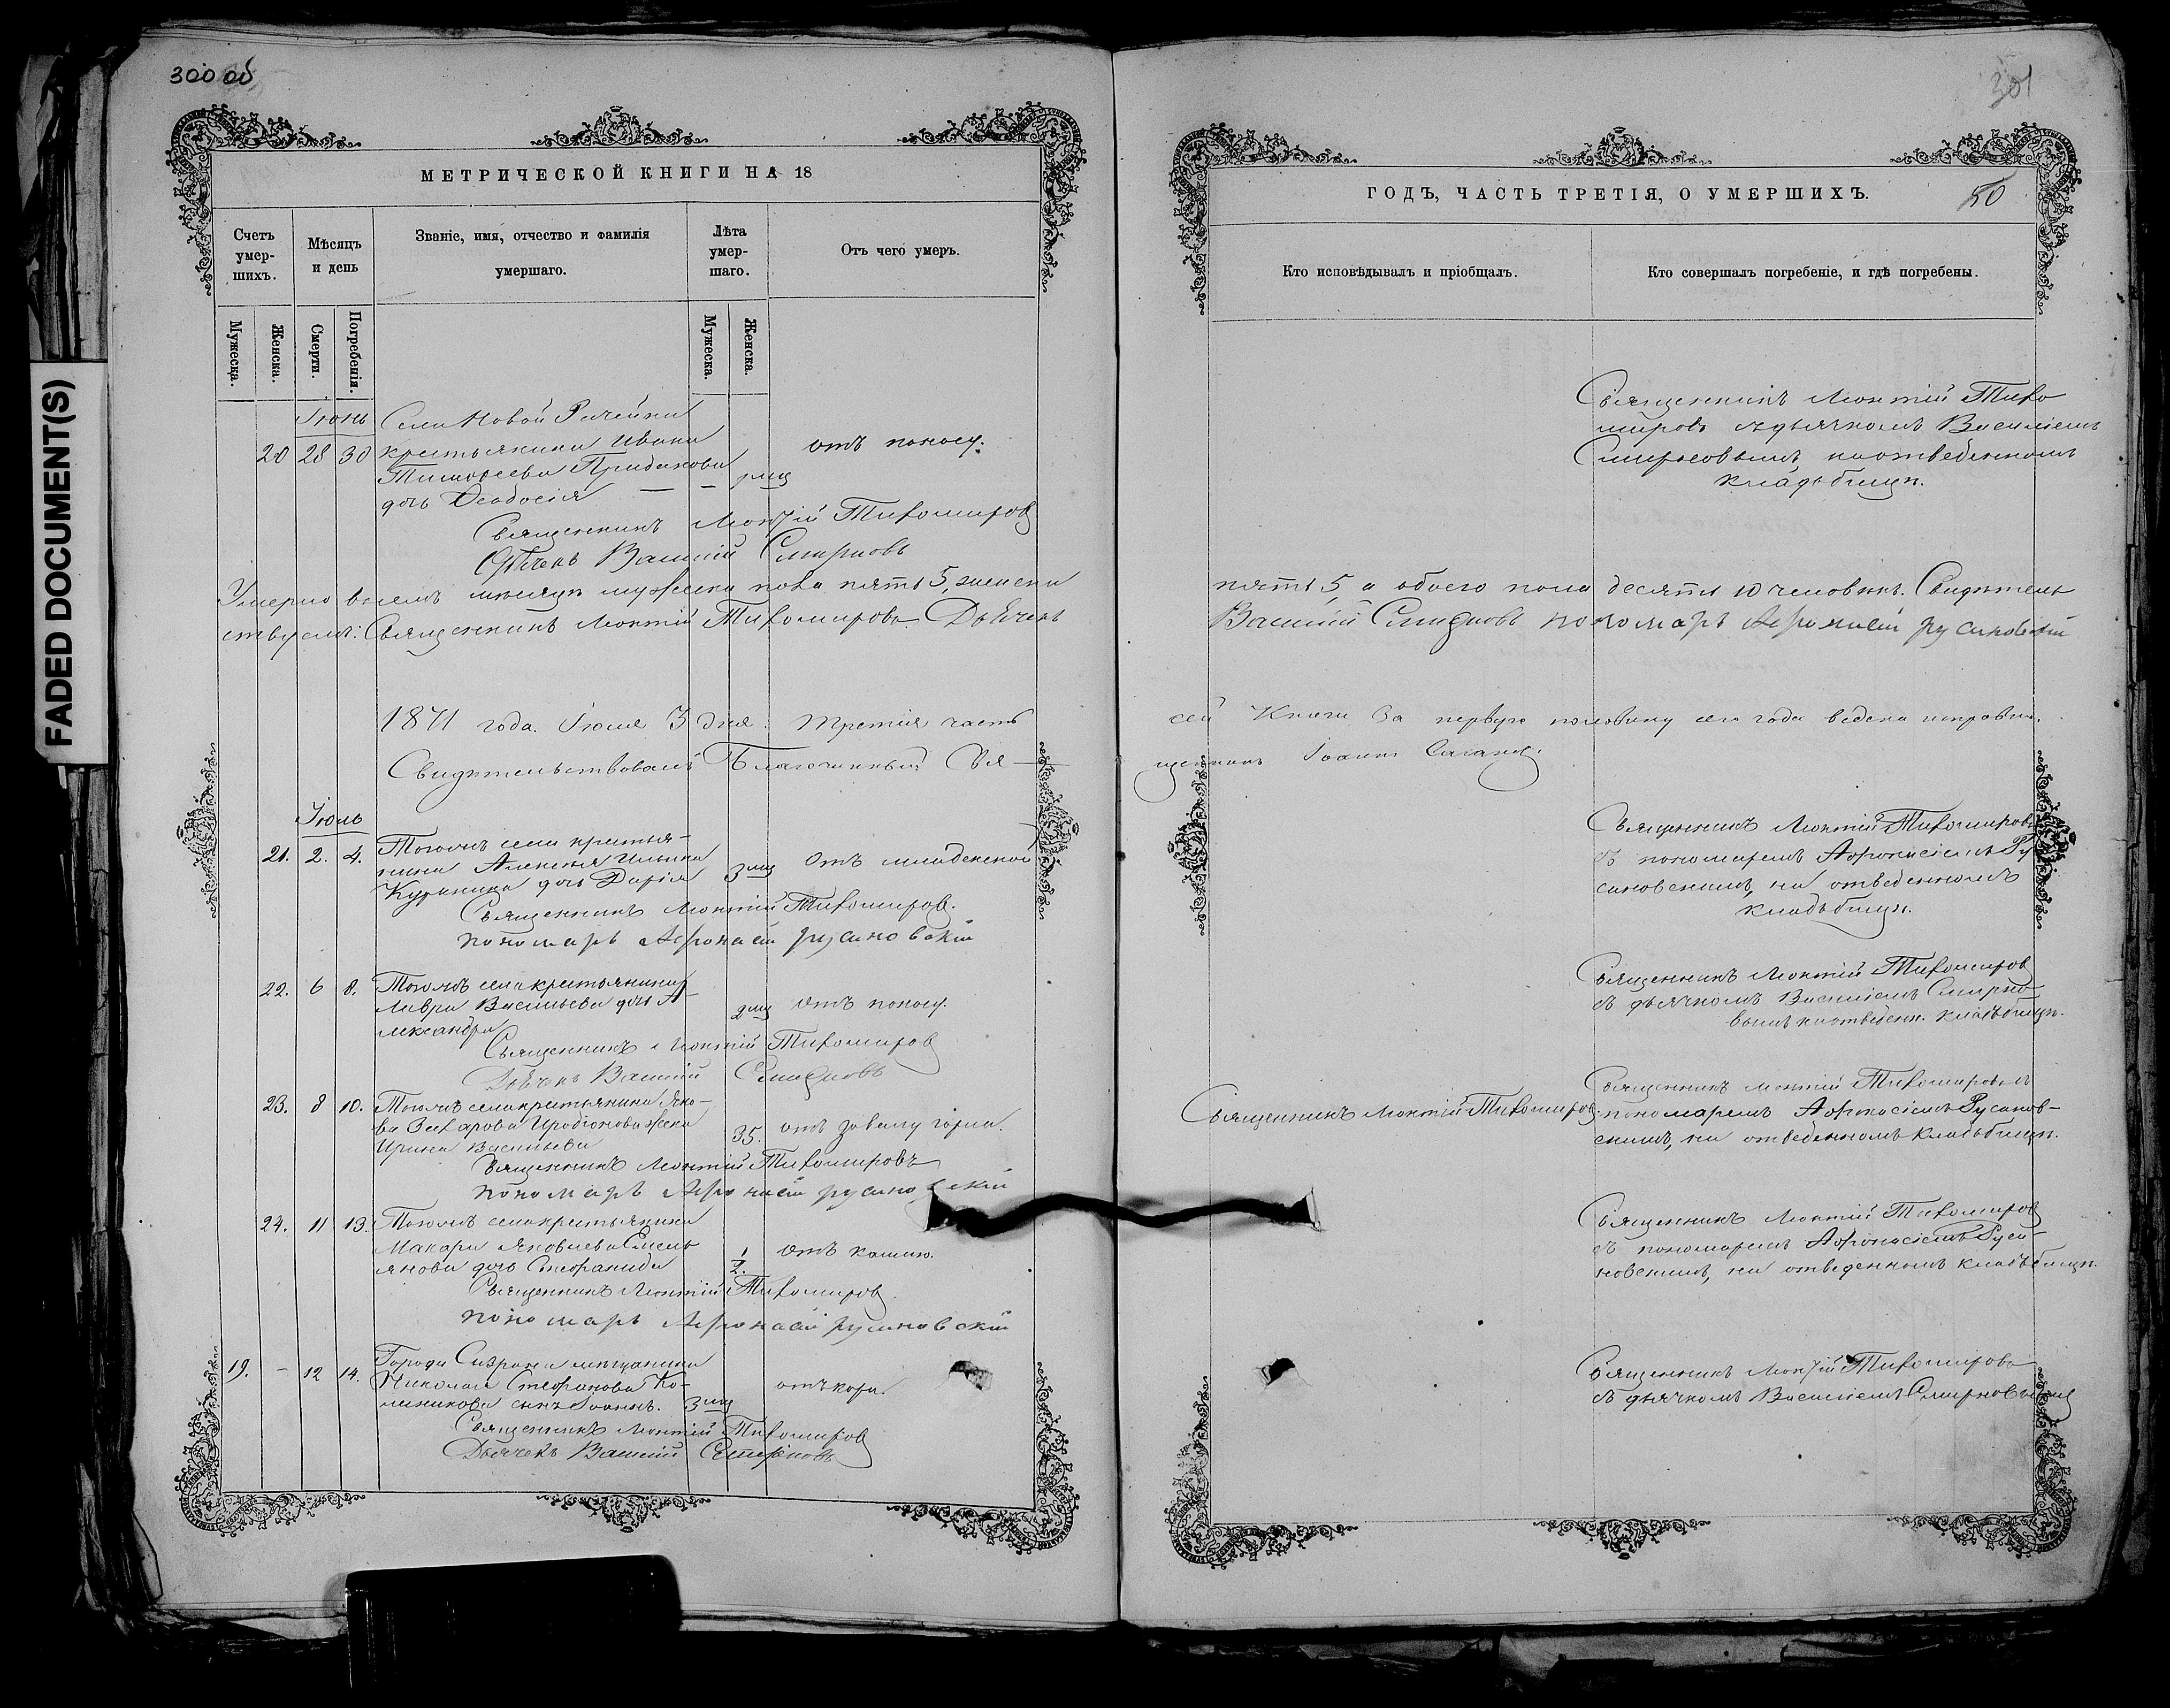 300 об
МЕТРИЧЕСКОЙ КНИГИ НА 18
Счетъ умер-шихъ.
Мѣсяцъ и день
Званіе, имя, отчество и фамилія умершаго.
Лѣта умер-шаго.
Отъ чего умеръ.
Мужеска.
Женска.
Смерти.
Погребенія.
Мужеска.
Женска.
Іюнь
Села Новой Рачейки
20 28 30 крестьянина Ивана
отъ поносу.
Тимофеева
дочь Феодосія
Священникъ Леонтій Тихомировъ
Дьячекъ Василій Смирновъ
Умерло въ семъ месяце мужеска пола пять 5, женска
Священникъ Леонтій Тихомировъ. Дьячекъ
1871 года. Іюля 3 дня. Третія часть
Свидетельствовалъ Благочинный Свя-
Іюль
21. 2. 4. Тогожъ села крестья-
нина Алексея Ильина
3 мц отъ младенской
дочь Дарія
Священникъ Леонтій Тихомировъ.
пономарь Афонасій русановскій
22. 6 8. Тогожъ села крестьянина
Лавра Васильева дочь А-
2 мц отъ поносу.
лександра
Священникъ Леонтій Тихомировъ
Дьячекъ Василій Смирновъ
23. 8 10. Тогожъ села крестьянина Яко-
ва Захарова Иродіонова жена
35. отъ завалу горла.
Ирина Васильева
Священникъ Леонтій Тихомировъ
пономарь Афонасій русановскій
24. 11 13. Тогожъ села крестьянина
Макара Яковлева Емель
1/2. отъ кашлю.
янова дочь Стефанида
Священникъ Леонтій Тихомировъ
пономарь Афонасій русановскій
19. - 12 14. Города Сызрана мещанина
Николая Стефанова Ко-
отъ кори.
лесникова сынъ Іоаннъ. 3 мц
Священникъ Леонтій Тихомировъ
Дьячекъ Василій Смирновъ
301
ГОДЪ, ЧАСТЬ ТРЕТІЯ, О УМЕРШИХЪ.
50
Кто исповѣдывалъ и пріобщалъ.
Кто совершалъ погребеніе, и гдѣ погребены.
Священникъ Леонтій Тихо
мировъ съ дьячкомъ Василіемъ
Смирновымъ, на отведенномъ
кладбище.
пять 5, а обоего пола десять 10 человекъ. Свидетель
Василій Смирновъ пономарь Афонасій русановскій
сей Книги за первую половину сего года ведена исправно.
щенникъ Іоаннъ
Священникъ Леонтій Тихомировъ
съ пономаремъ Афонасіемъ Ру
сановскимъ, на отведенномъ
кладбище.
Священникъ Леонтій Тихомировъ
съ дьячкомъ Василіемъ Смирно-
вымъ на отведен. кладбище.
Священникъ Леонтій Тихомировъ съ
Священникъ Леонтій Тихомировъ. пономаремъ Афонасіемъ Русанов-
скимъ, на отведенномъ кладбище.
Священникъ Леонтій Тихомировъ
съ пономаремъ Афонасіемъ Руса-
новскимъ, на отведенномъ кладбище.
Священникъ Леонтій Тихомировъ
съ дьячкомъ Василіемъ Смирновымъ
FADED DOCUMENT(S)